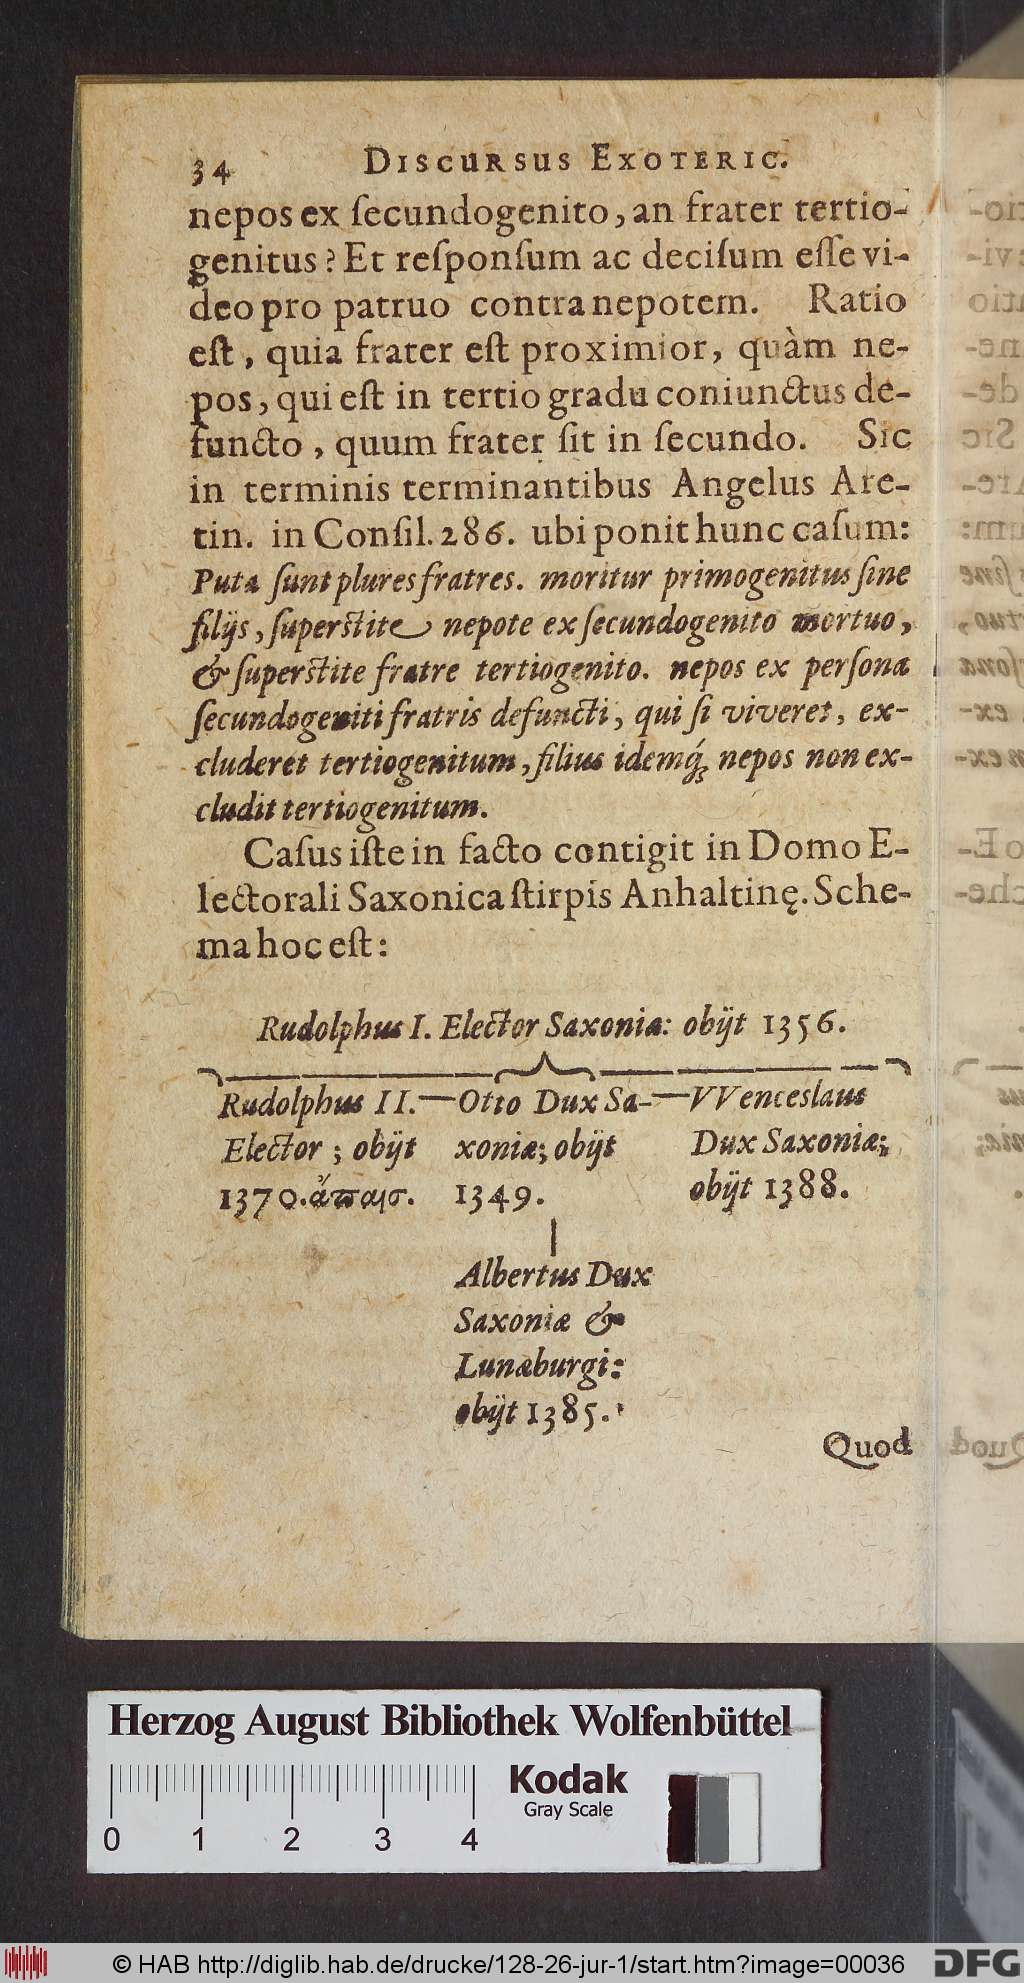 34 DISCURSUS EXOTERIC.
nepos ex ſecundogenito, an frater tertio-
genitus? Et reſponſum ac deciſum eſſe vi-
deo pro patruo contra nepotem. Ratio
eſt, quia frater eſt proximior, quàm ne-
pos, qui eſt in tertio gradu coniunctus de-
functo, quum frater ſit in ſecundo. Sic
in terminis terminantibus Angelus Are-
tin. in Conſil. 286. ubi ponit hunc caſum:
Puta ſunt plures fratres. moritur primogenitus ſine
filijs, ſuperſtite nepote ex ſecundogenito mortuo,
& ſuperſtite fratre tertiogenito. nepos ex perſona
ſecundogeniti fratris defuncti, qui ſi viveret, ex-
cluderet tertiogenitum, filius idemq́ꝫ nepos non ex-
cludit tertiogenitum.
Caſus iſte in facto contigit in Domo E-
lectorali Saxonica ſtirpis Anhaltinę. Sche-
ma hoc eſt:
Rudolphus I. Elector Saxoniæ: obijt 1356.
Rudolphus II. — Otto Dux Sa- — VVenceslaus
Elector; obijt xoniæ; obijt Dux Saxoniæ;
1370. ἄπαις. 1349. obijt 1388.
Albertus Dux
Saxoniæ &
Lunæburgi:
obijt 1385.
Quod
Herzog August Bibliothek Wolfenbüttel
Kodak
Gray Scale
0 1 2 3 4
© HAB http://diglib.hab.de/drucke/128-26-jur-1/start.htm?image=00036
DFG